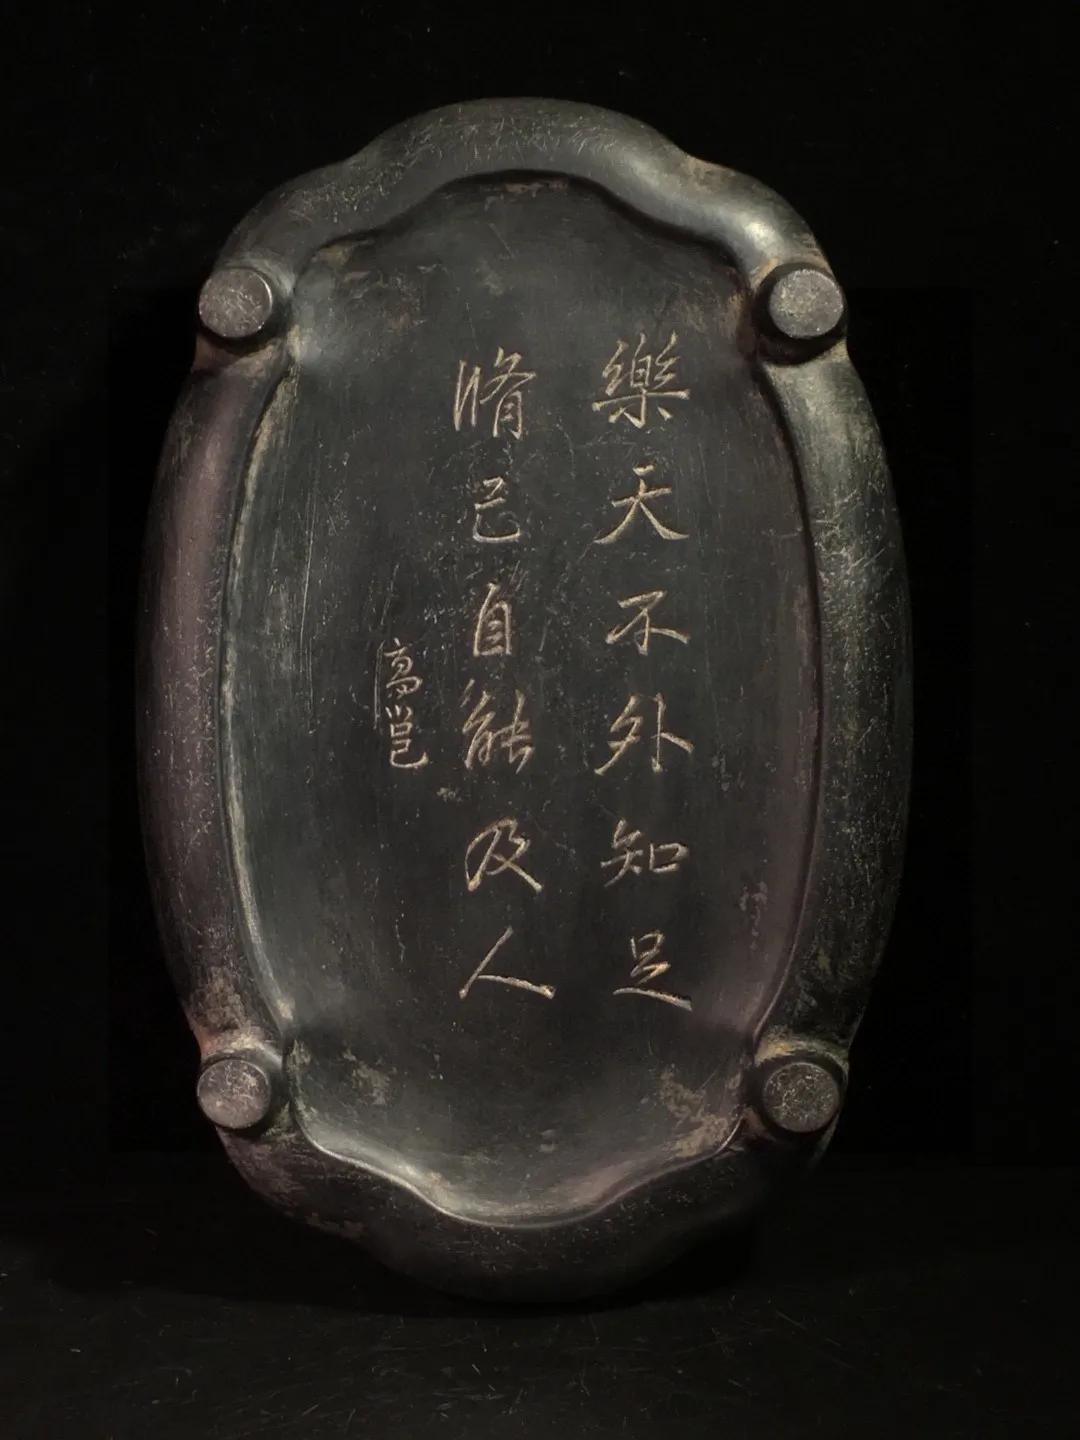 樂天不外知足
脩己自能及人
高邕